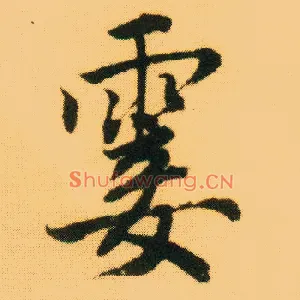 霎
Shufawang.CN